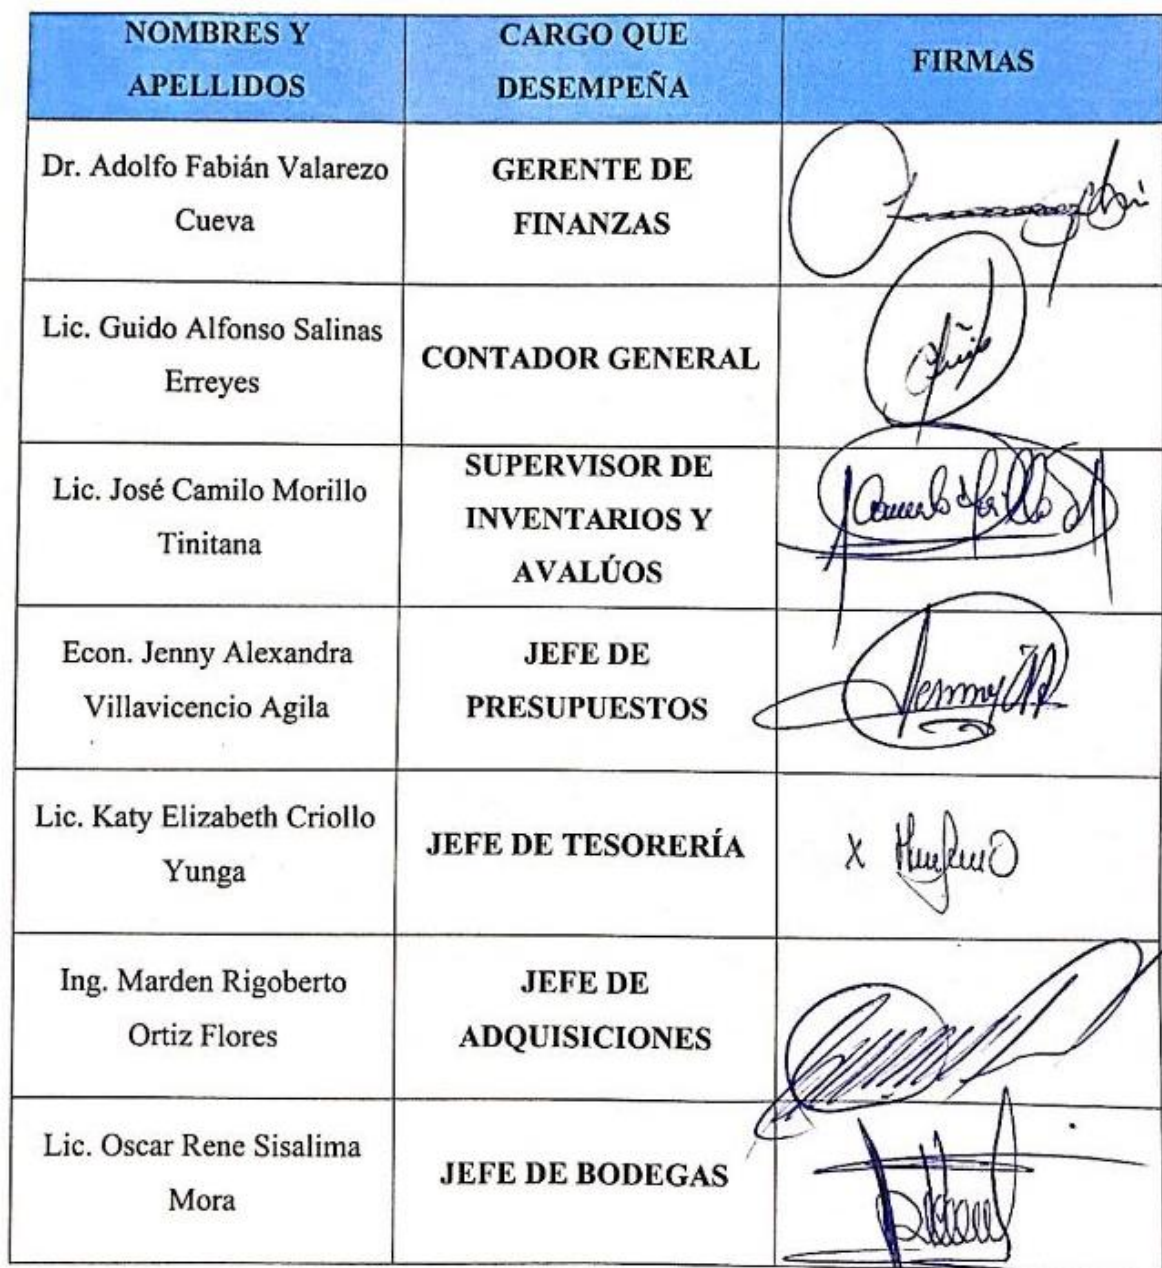 NOMBRES Y
APELLIDOS
CARGO QUE
DESEMPEÑA
FIRMAS
Dr. Adolfo Fabián Valarezo
Cueva
GERENTE DE
FINANZAS
Lic. Guido Alfonso Salinas
Erreyes
CONTADOR GENERAL
Lic. José Camilo Morillo
Tinitana
SUPERVISOR DE
INVENTARIOS Y
AVALÚOS
Camilo Morillo
Econ. Jenny Alexandra
Villavicencio Agila
JEFE DE
PRESUPUESTOS
Jenny
Lic. Katy Elizabeth Criollo
Yunga
JEFE DE TESORERÍA
X
Ing. Marden Rigoberto
Ortiz Flores
JEFE DE
ADQUISICIONES
Lic. Oscar Rene Sisalima
Mora
JEFE DE BODEGAS